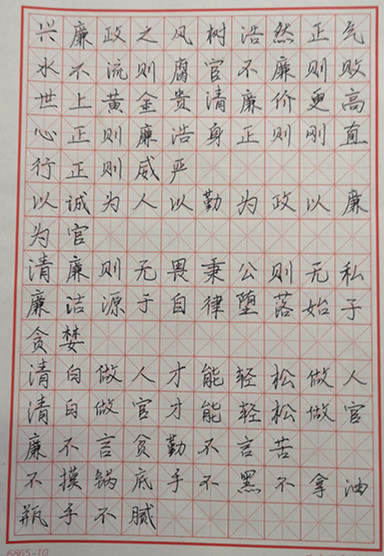 兴廉政之风树浩然正气
水不流则腐官不廉则败
世上黄金贵清廉价更高
心正则廉浩身正则刚直
行正则威严
以诚为人以勤为政以廉
为官
清廉则无畏秉公则无私
廉洁源于自律堕落始于
贪婪
清白做人才能轻松做人
清白做官才能轻松做官
廉不言贪勤不言苦
不摸锅底手不黑不拿油
瓶手不腻
6865-10